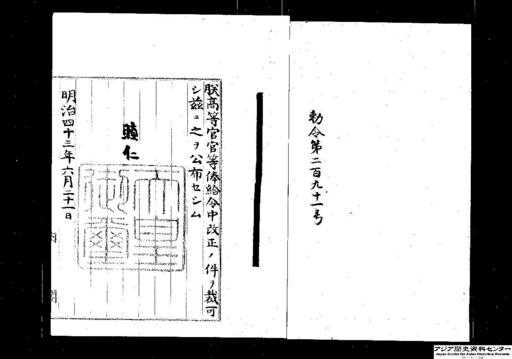 勅令第二百九十一号
朕高等官官等俸給令中改正ノ件ヲ裁可
シ茲ニ之ヲ公布セシム
睦仁
天皇御璽
明治四十三年六月二十一日
内閣
アジア歴史資料センター
Japan Center for Asian Historical Records